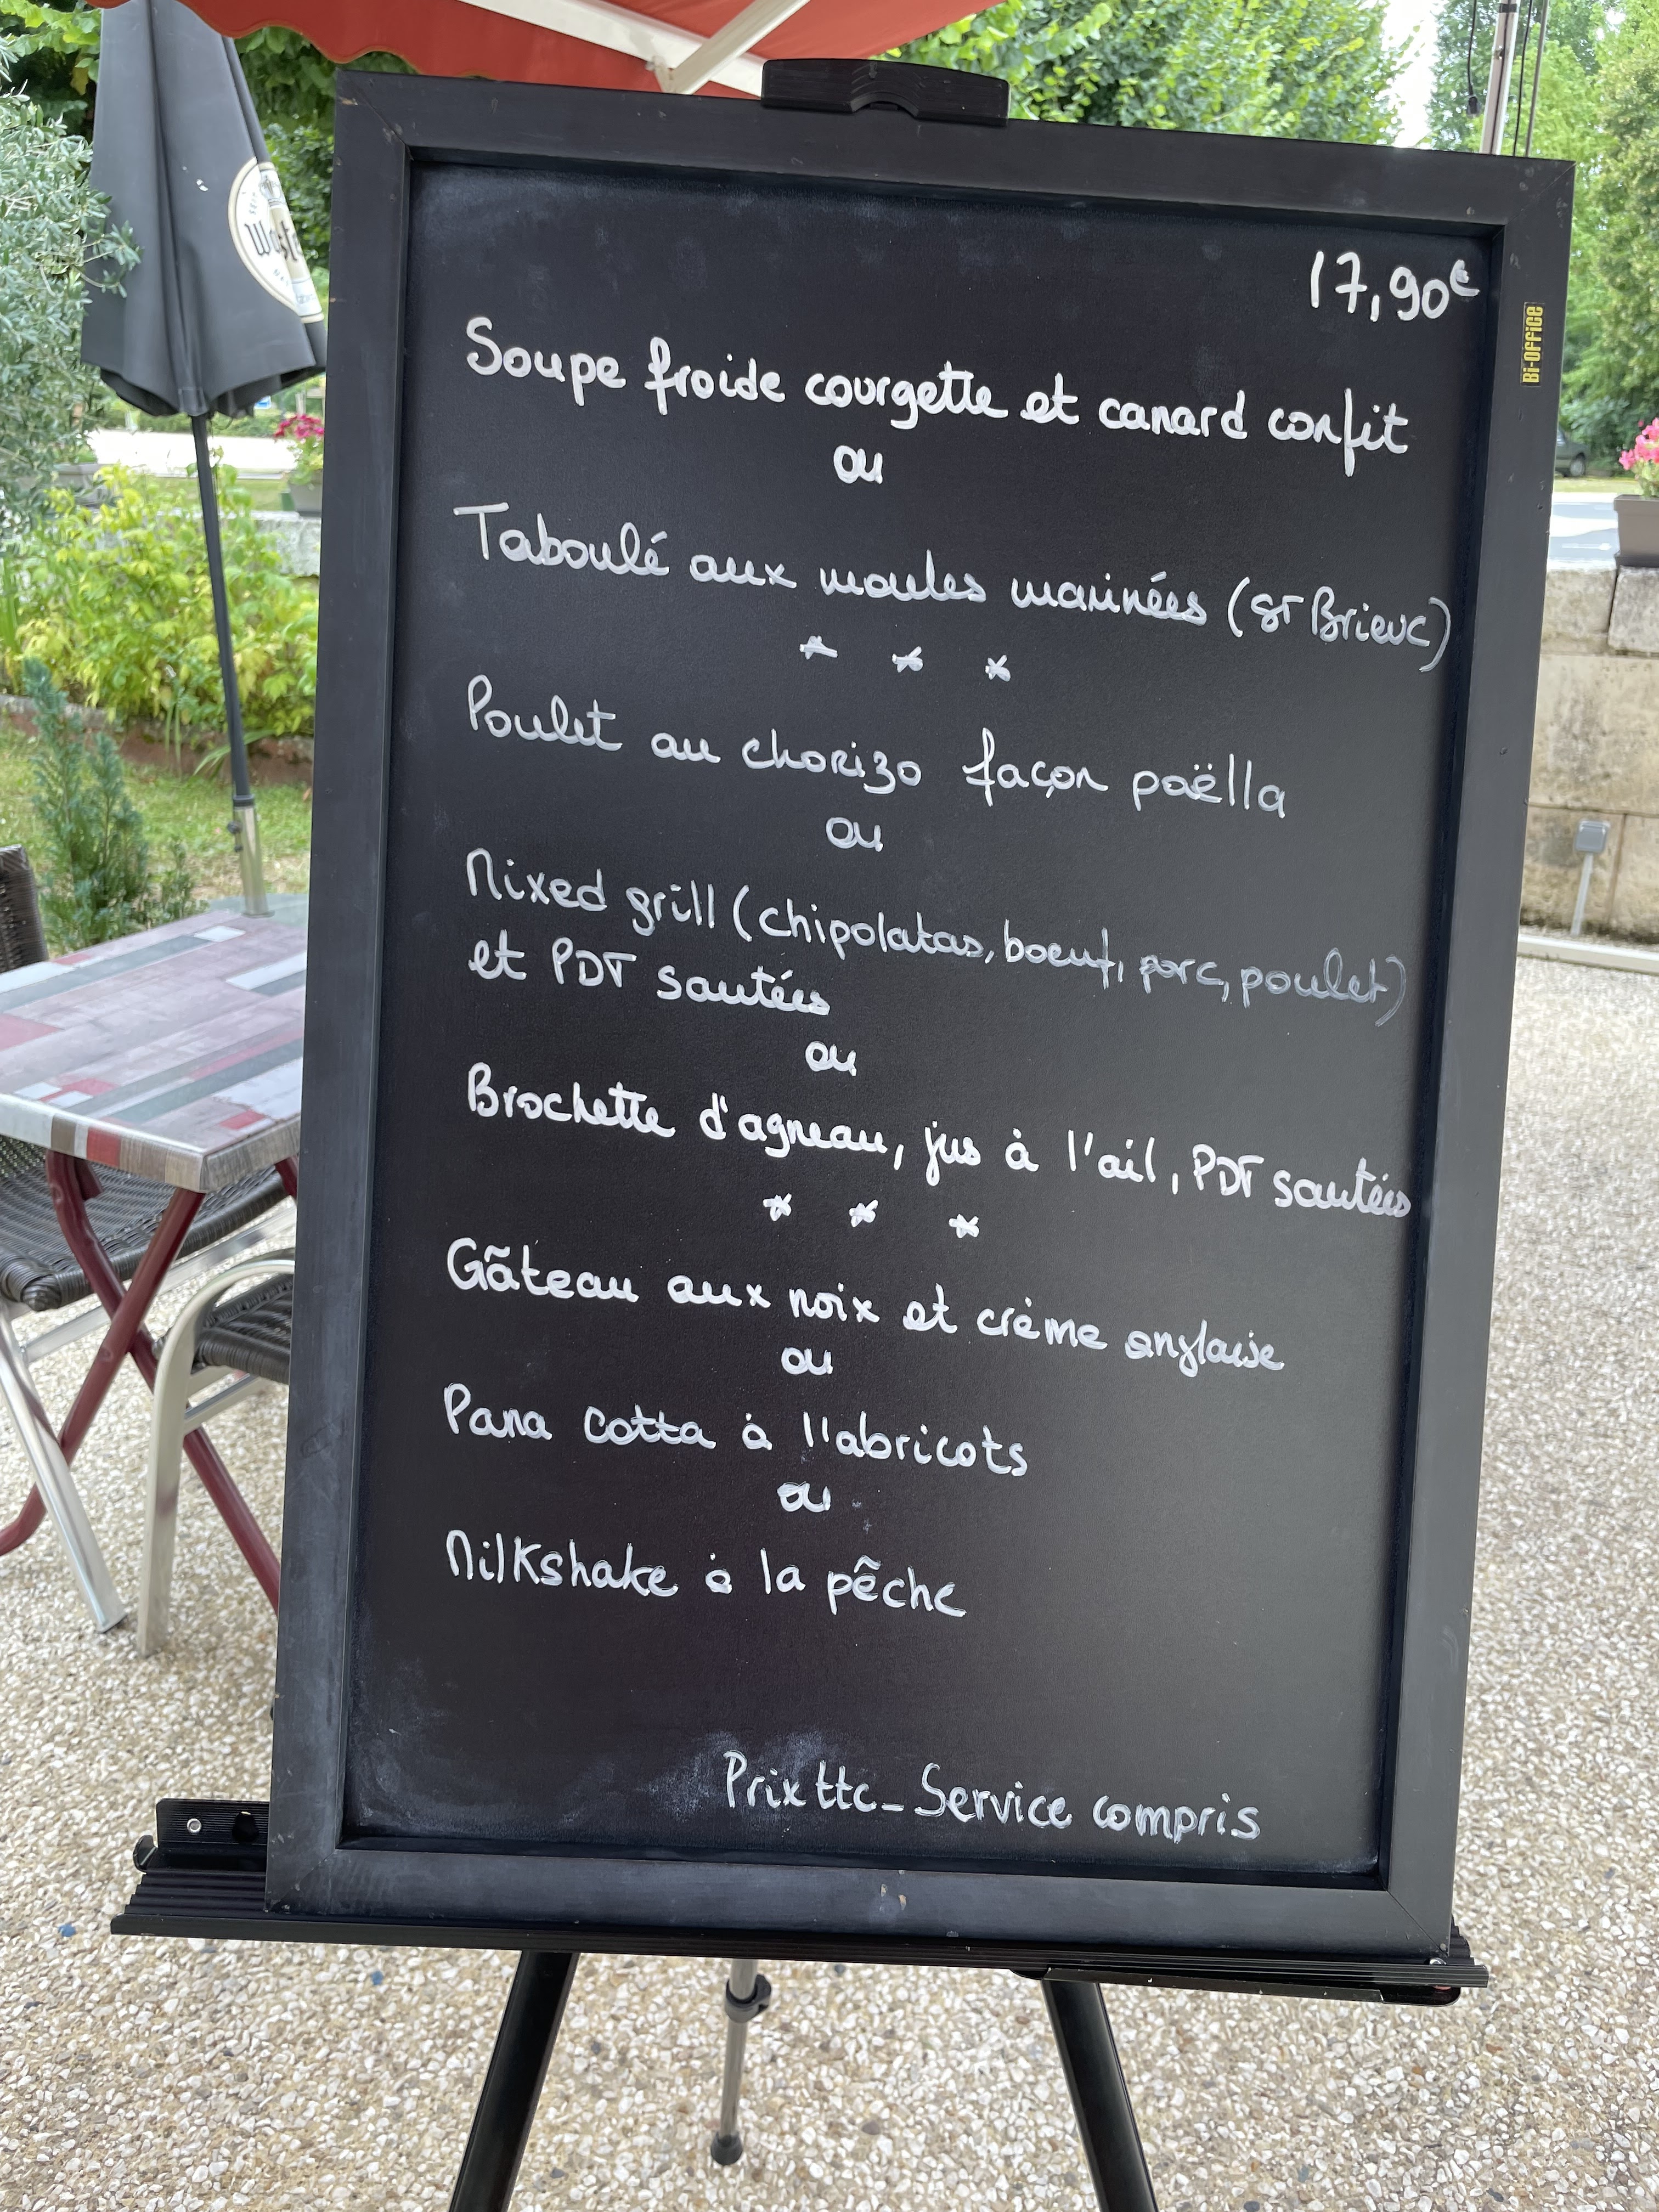 17,90€
Soupe froide courgette et canard confit
ou
Taboulé aux moules marinées (ST Brieuc)
* * *
Poulet au chorizo façon paëlla
ou
Mixed grill (chipolatas, boeuf, porc, poulet)
et PDT sautées
ou
Brochette d'agneau, jus à l'ail, PDT sautées
* * *
Gâteau aux noix et crème anglaise
ou
Pana cotta à l'abricots
ou
Milkshake à la pêche
Prix ttc_Service compris
Bi-Office